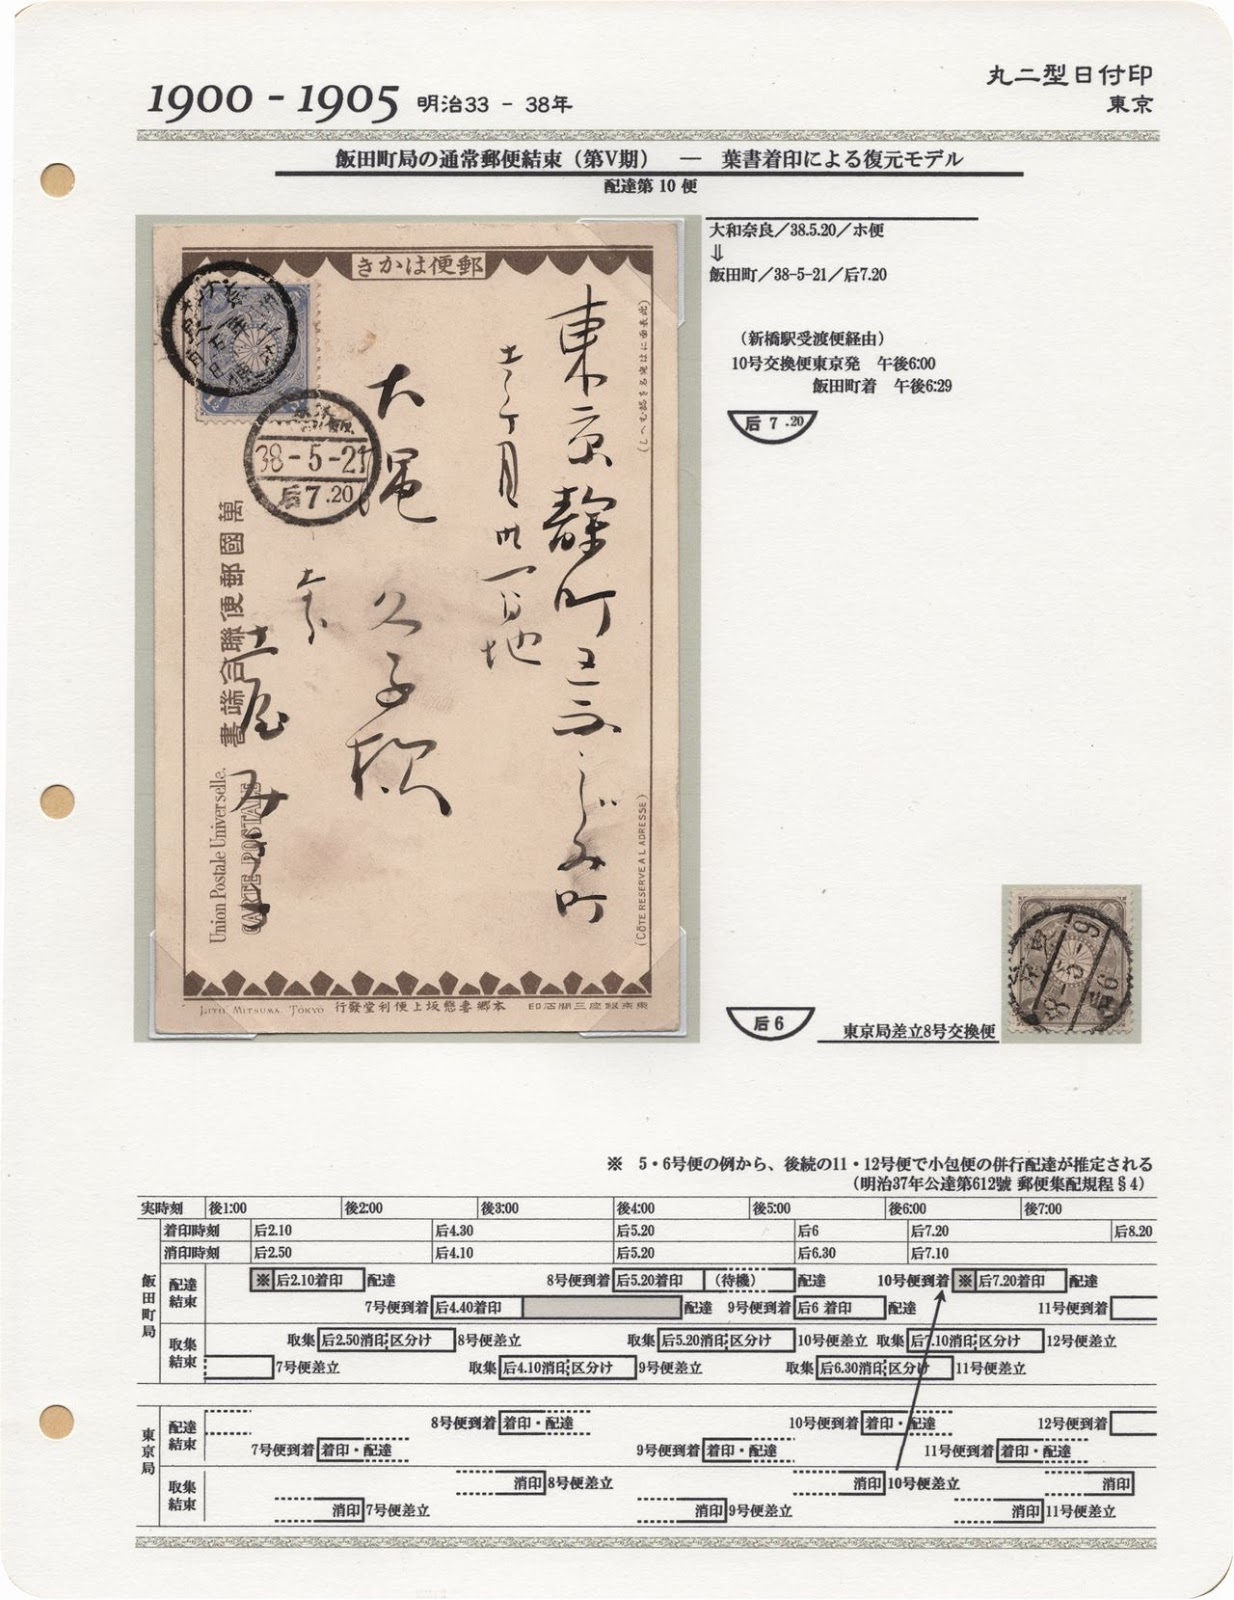 丸二型日付印
1900 - 1905 明治33 - 38年
東京
飯田町局の通常郵便結束（第V期） — 葉書着印による復元モデル
配達第 10 便
大和奈良／38.5.20／ホ便
⇓
飯田町／38-5-21／后7.20
（新橋駅受渡便経由）
10号交換便東京発 午後6:00
飯田町着 午後6:29
后 7 .20
郵便はかき
38-5-21
后7.20
東京
町
大
久子様
土屋
萬國郵便聯合端書
Union Postale Universelle.
CARTE POSTALE
(CÔTE RESERVE A L ADRESSE)
LITH MITSUMA TOKYO
本郷妻戀坂上便利堂發行
后 6
東京局差立8号交換便
※ 5・6号便の例から、後続の11・12号便で小包便の併行配達が推定される
（明治37年公達第612號 郵便集配規程§4）
実時刻 後1:00 後2:00 後3:00 後4:00 後5:00 後6:00 後7:00
着印時刻 后2.10 后4.30 后5.20 后6 后7.20 后8.20
消印時刻 后2.50 后4.10 后5.20 后6.30 后7.10
飯田町局
配達結束
※ 后2.10着印 配達 8号便到着 后5.20着印 （待機） 配達 10号便到着 ※ 后7.20着印 配達
7号便到着 后4.40着印 配達 9号便到着 后6 着印 配達 11号便到着
取集結束
取集 后2.50消印 区分け 8号便差立 取集 后5.20消印 区分け 10号便差立 取集 后7.10消印 区分け 12号便差立
7号便差立 取集 后4.10消印 区分け 9号便差立 取集 后6.30消印 区分け 11号便差立
東京局
配達結束
8号便到着 着印・配達 10号便到着 着印・配達 12号便到着
7号便到着 着印・配達 9号便到着 着印・配達 11号便到着 着印・配達
取集結束
消印 8号便差立 消印 10号便差立 消印
消印 7号便差立 消印 9号便差立 消印 11号便差立